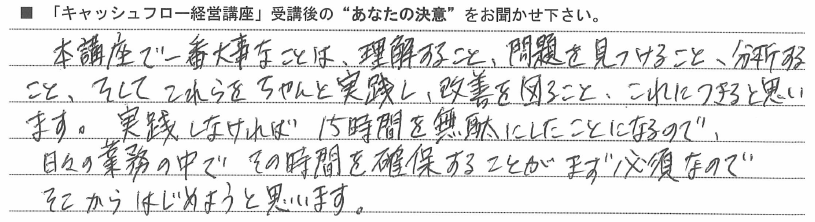 ■ 「キャッシュフロー経営講座」受講後の“あなたの決意”をお聞かせ下さい。
本講座で一番大事なことは、理解すること、問題を見つけること、分析する
こと、そしてこれらをちゃんと実践し、改善を図ること、これにつきると思い
ます。実践しなければ15時間を無駄にしたことになるので、
日々の業務の中でその時間を確保することがまず必須なので
そこからはじめようと思います。